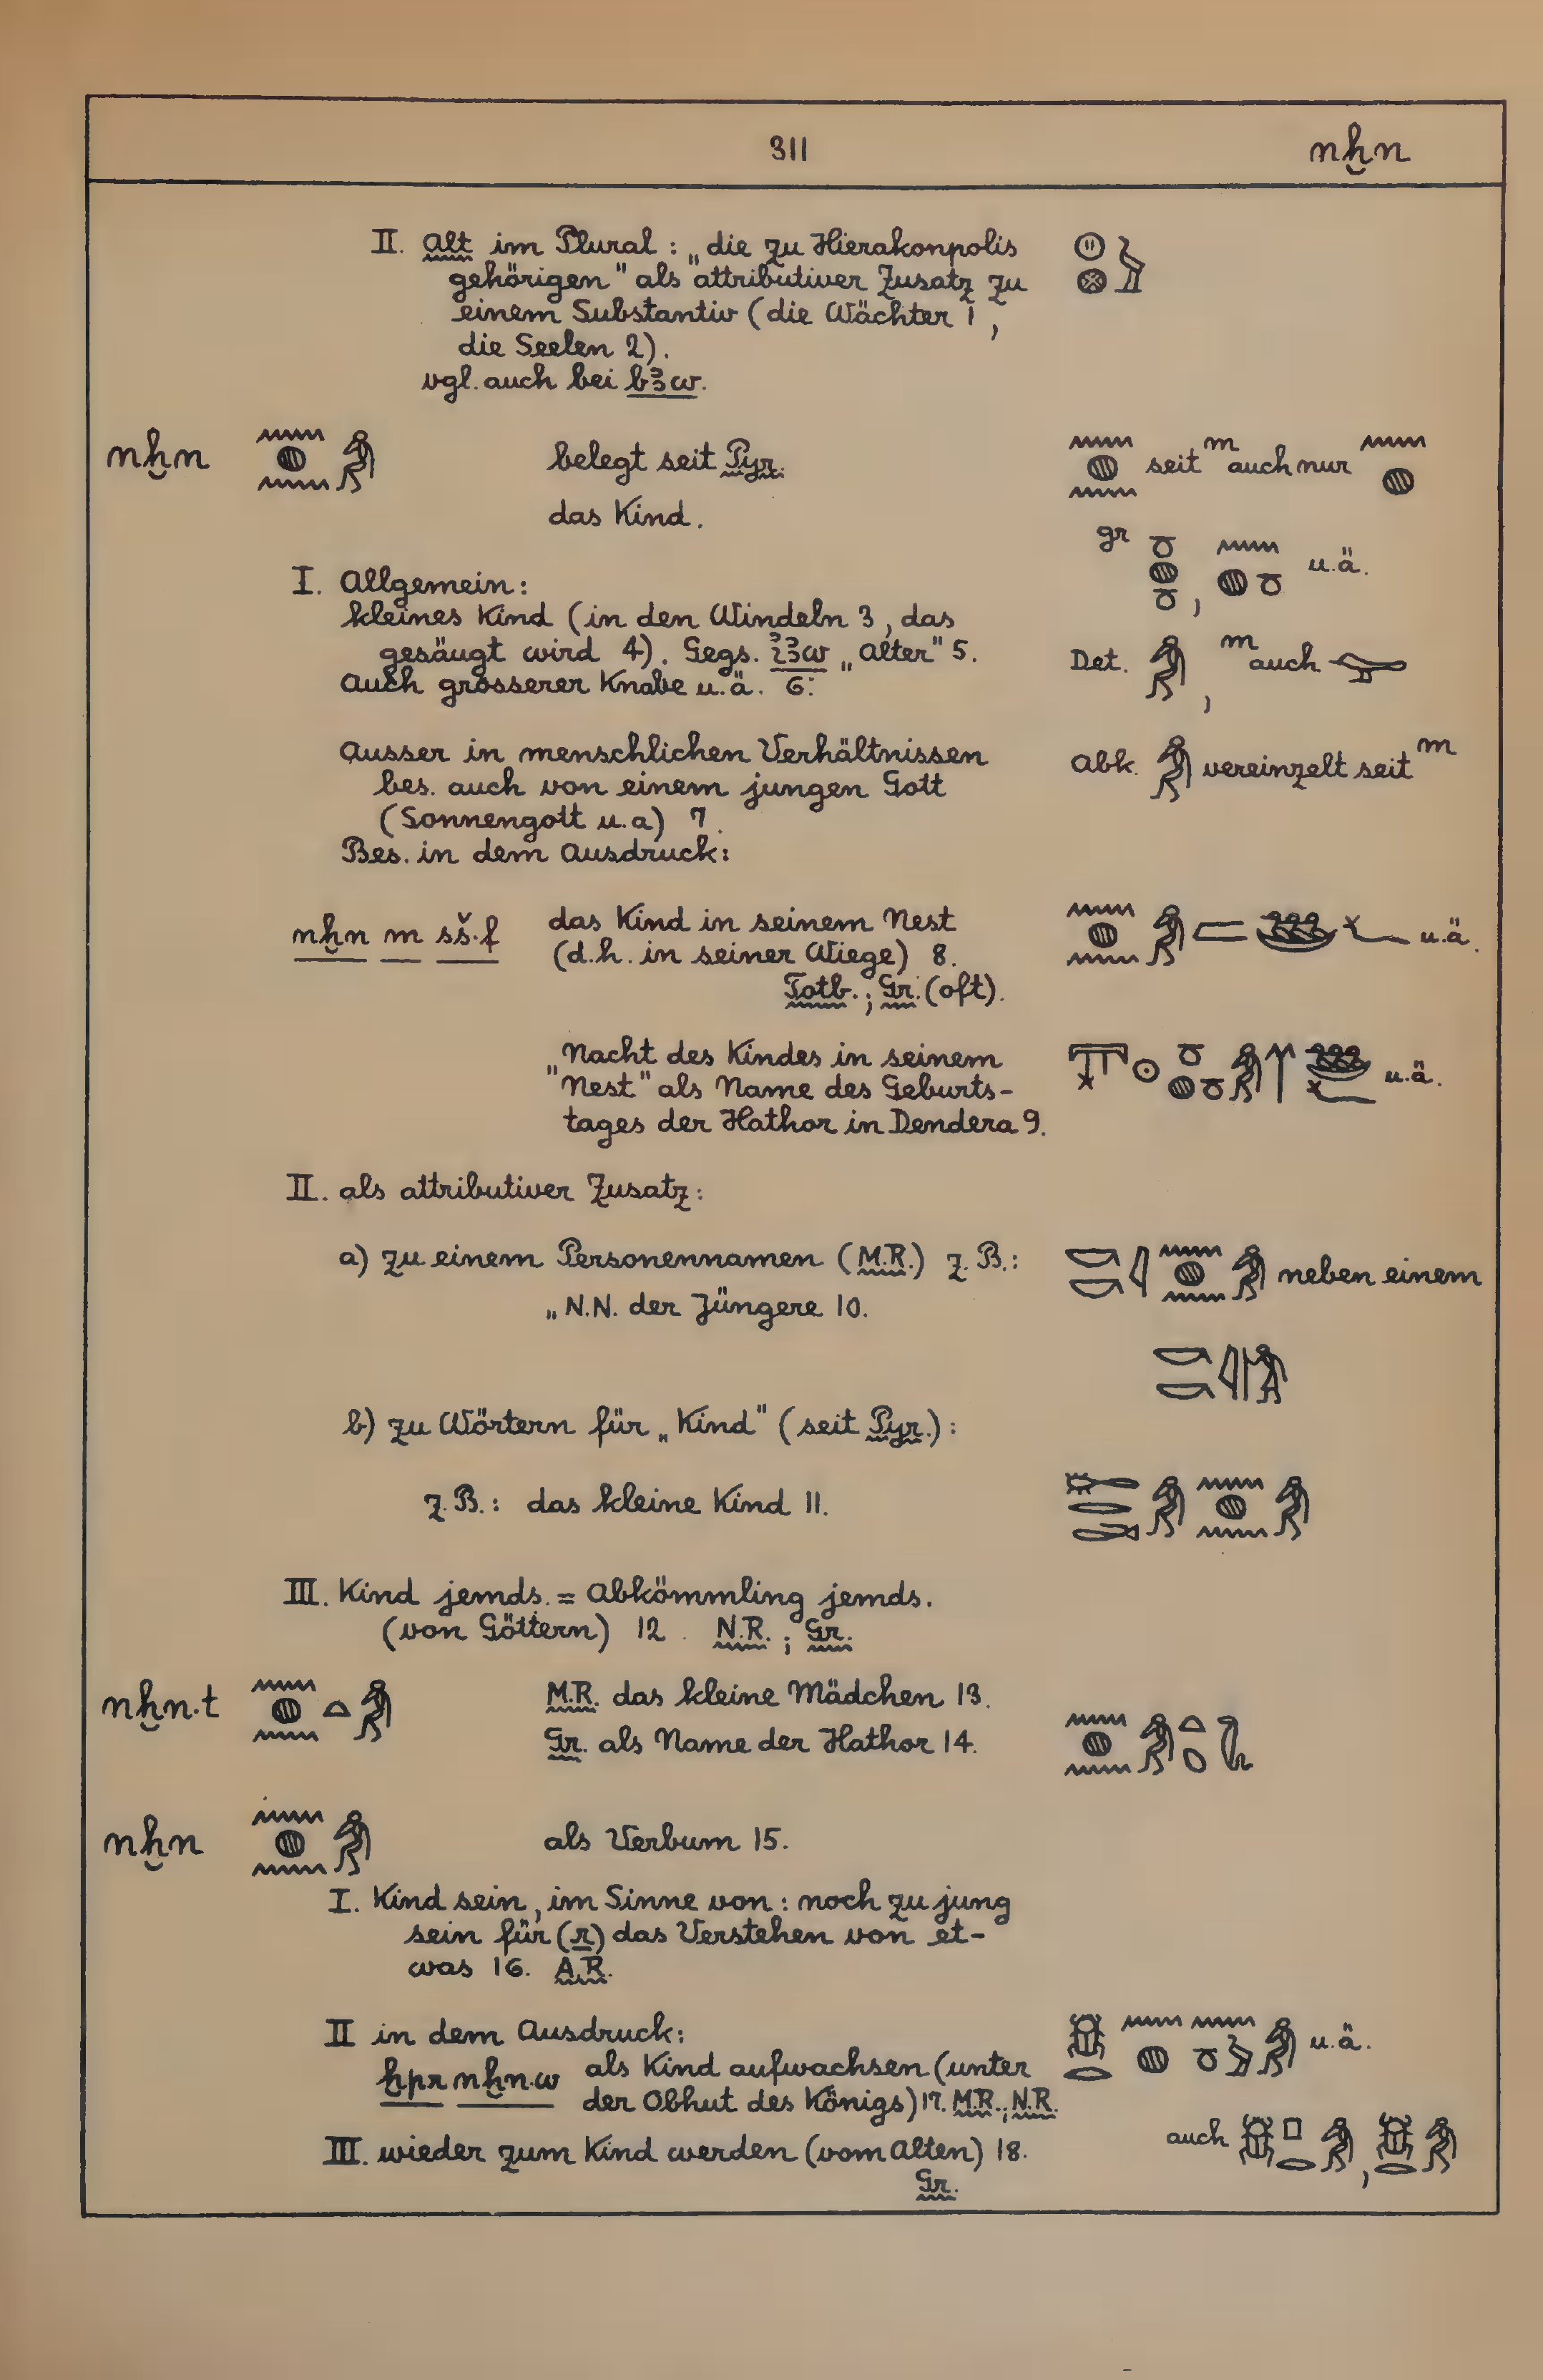 311 nḫn
II. Alt im Plural : „die zu Hierakonpolis
gehörigen" als attributiver Zusatz zu
einem Substantiv (die Wächter 1,
die Seelen 2).
vgl. auch bei bꜣw.
nḫn belegt seit Pyr. seit m auch nur
das Kind.
gr , u.ä.
I. Allgemein:
kleines Kind (in den Windeln 3, das
gesäugt wird 4). Gegs. „Alter" 5.
Auch grösserer Knabe u.ä. 6.
Det. , m auch
Ausser in menschlichen Verhältnissen
bes. auch von einem jungen Gott
(Sonnengott u.a) 7.
Bes. in dem Ausdruck:
Abk. vereinzelt seit m
nḫn m sš·f das Kind in seinem Nest u.ä.
(d.h. in seiner Wiege) 8.
Totb.; Gr. (oft).
„Nacht des Kindes in seinem
Nest" als Name des Geburts- u.ä.
tages der Hathor in Dendera 9.
II. als attributiver Zusatz:
a) zu einem Personennamen (M.R.) z.B.: neben einem
„N.N. der Jüngere 10.
b) zu Wörtern für „Kind" (seit Pyr.):
z.B.: das kleine Kind 11.
III. Kind jemds. = Abkömmling jemds.
(von Göttern) 12. N.R.; Gr.
nḫn·t M.R. das kleine Mädchen 13.
Gr. als Name der Hathor 14.
nḫn als Verbum 15.
I. Kind sein, im Sinne von: noch zu jung
sein für (r) das Verstehen von et-
was 16. A.R.
II in dem Ausdruck:
ḫpr nḫn·w als Kind aufwachsen (unter u.ä.
der Obhut des Königs) 17. M.R.; N.R.
III. wieder zum Kind werden (vom Alten) 18. auch ,
Gr.